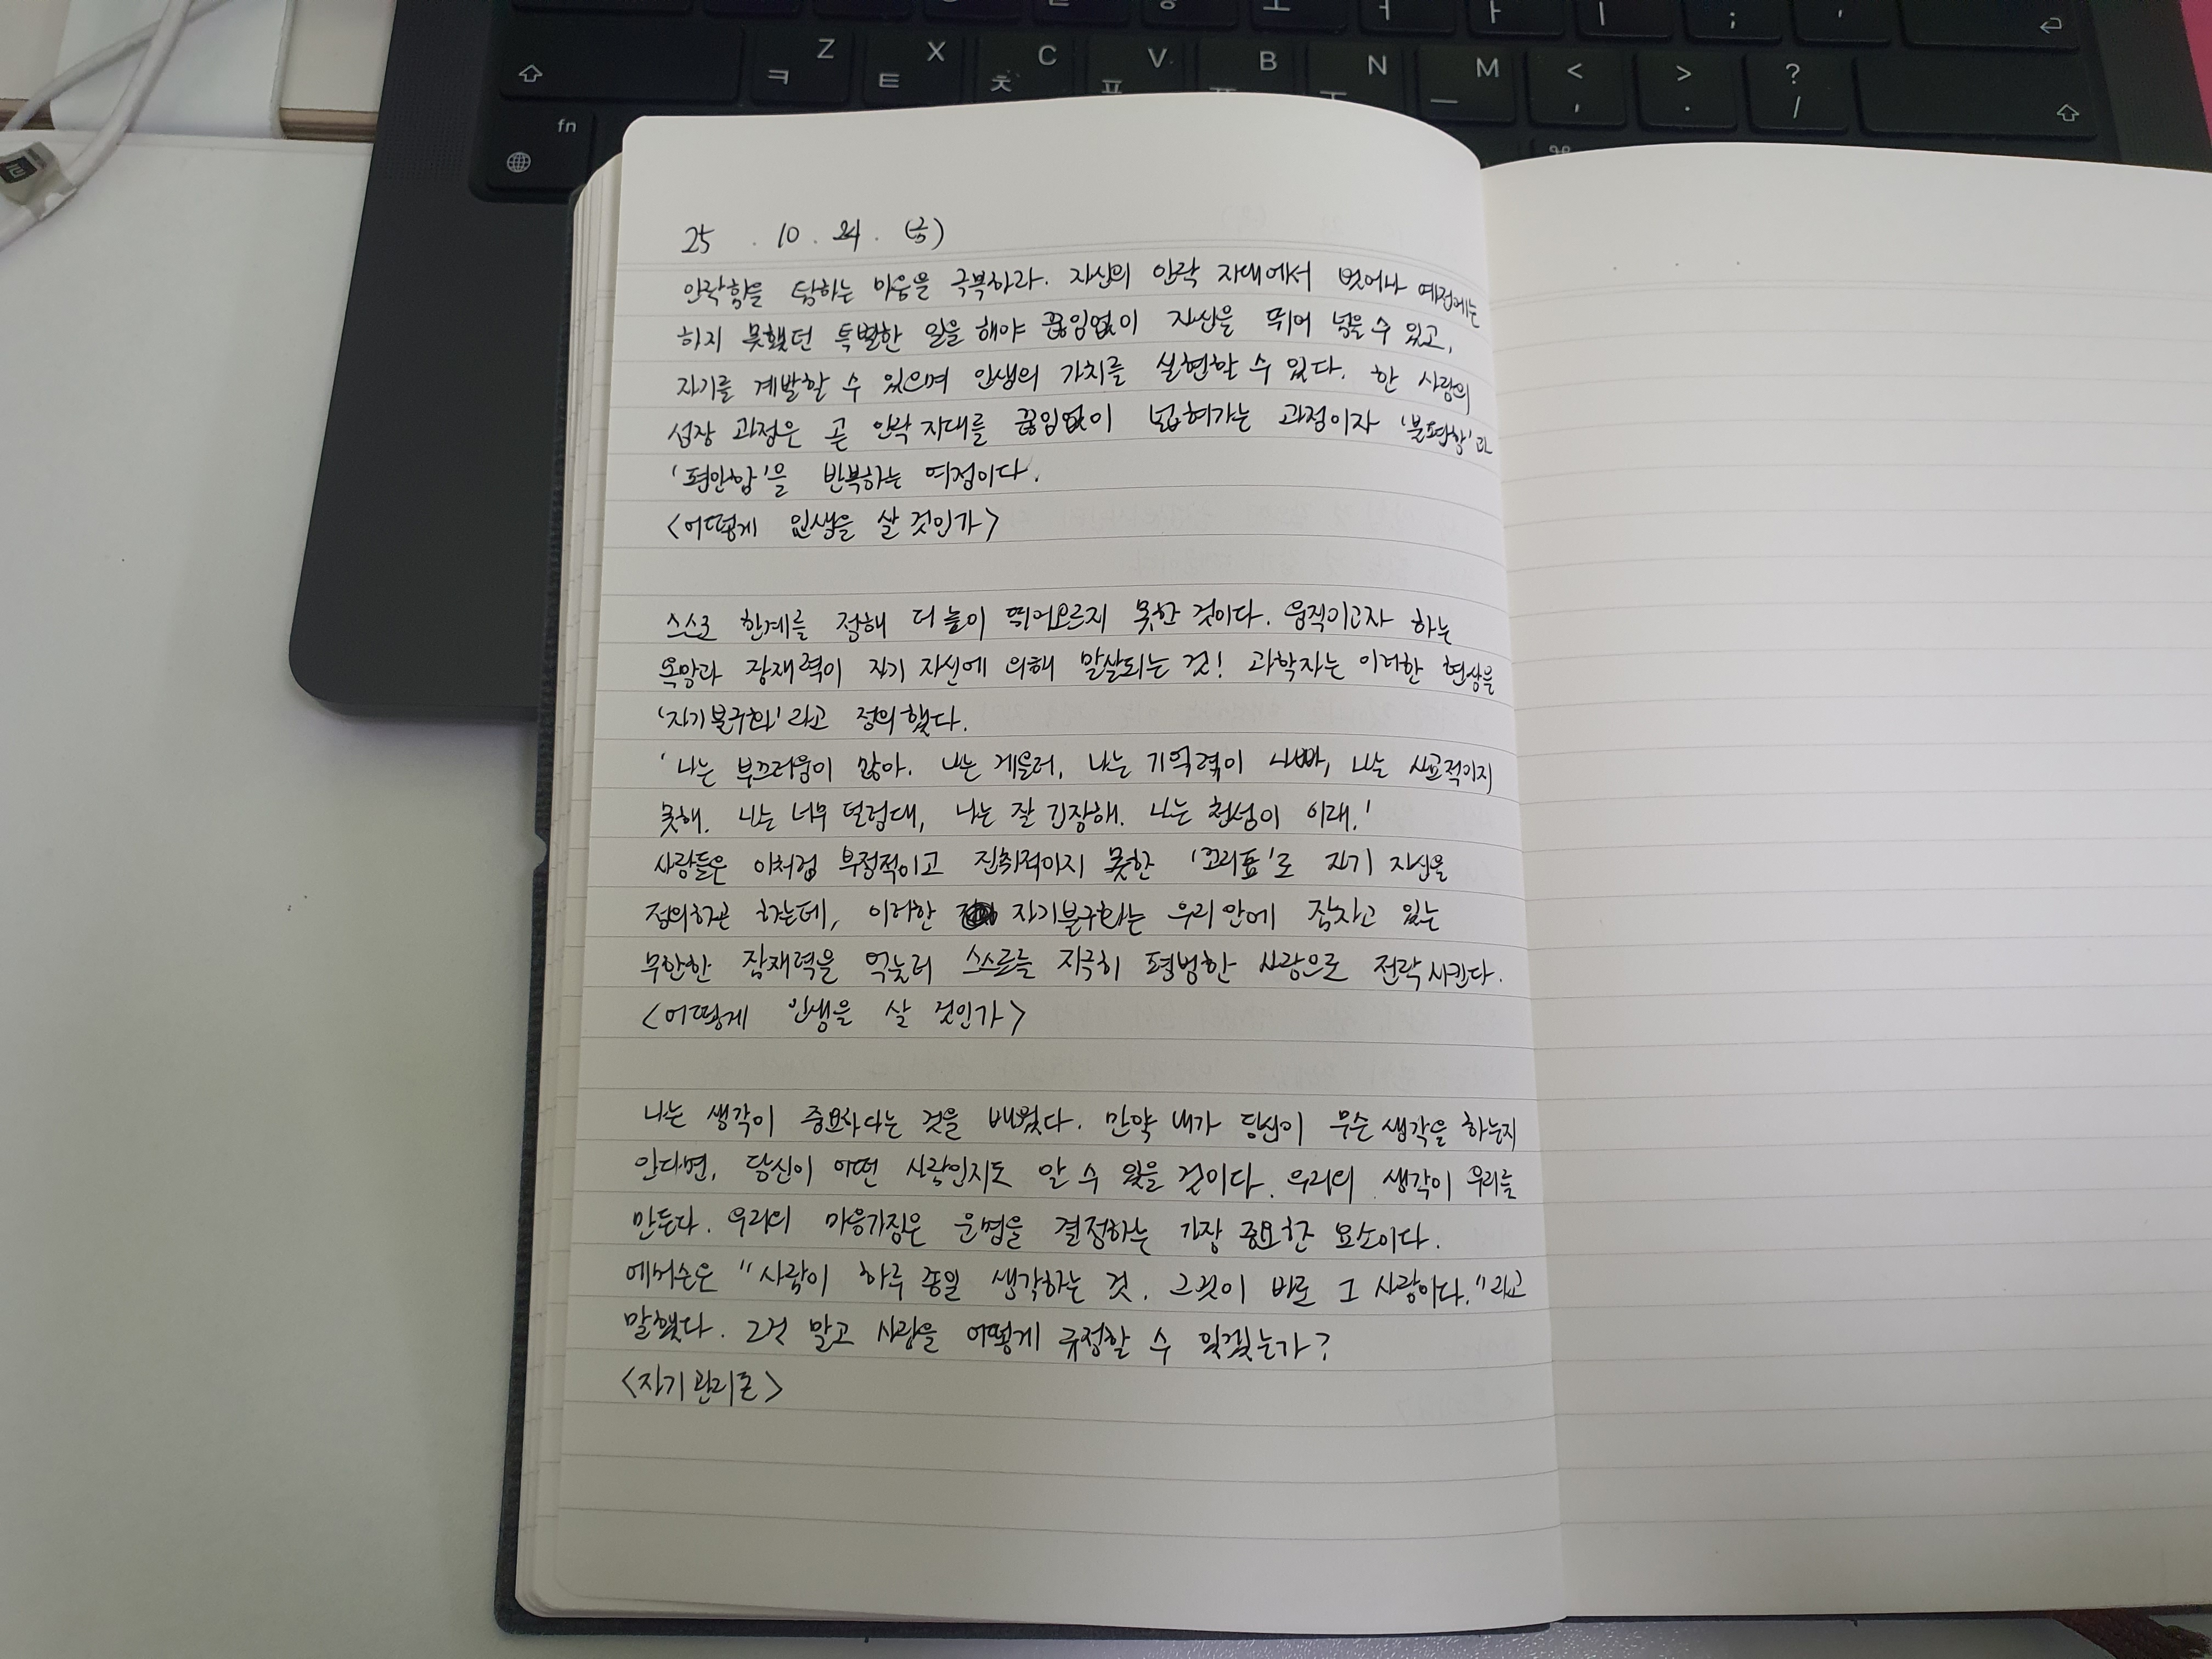 Z ㅋ X ㅌ C ㅊ V ㅍ B N M ㅡ < , > . ? /
fn
25 . 10 . 24 . (금)
안락함을 탐하는 마음을 극복하라. 자신의 안락 지대에서 벗어나 예전에는
하지 못했던 특별한 일을 해야 끊임없이 자신을 뛰어 넘을 수 있고,
자기를 계발할 수 있으며 인생의 가치를 실현할 수 있다. 한 사람의
성장 과정은 곧 안락 지대를 끊임없이 넓혀가는 과정이자 '불편함'과
'편안함'을 반복하는 여정이다.
<어떻게 인생을 살 것인가>
스스로 한계를 정해 더 높이 뛰어오르지 못한 것이다. 움직이고자 하는
욕망과 잠재력이 자기 자신에 의해 말살되는 것! 과학자는 이러한 현상을
'자기불구화'라고 정의했다.
'나는 부끄러움이 많아. 나는 게을러, 나는 기억력이 나빠, 나는 사교적이지
못해. 나는 너무 덜렁대, 나는 잘 긴장해. 나는 천성이 이래.'
사람들은 이처럼 부정적이고 진취적이지 못한 '꼬리표'로 자기 자신을
정의하곤 하는데, 이러한 자기불구화는 우리 안에 잠자고 있는
무한한 잠재력을 억눌러 스스로를 지극히 평범한 사람으로 전락시킨다.
<어떻게 인생을 살 것인가>
나는 생각이 중요하다는 것을 배웠다. 만약 내가 당신이 무슨 생각을 하는지
안다면, 당신이 어떤 사람인지도 알 수 있을 것이다. 우리의 생각이 우리를
만든다. 우리의 마음가짐은 운명을 결정하는 가장 중요한 요소이다.
에머슨은 "사람이 하루 종일 생각하는 것. 그것이 바로 그 사람이다."라고
말했다. 그것 말고 사람을 어떻게 규정할 수 있겠는가?
<자기관리론>